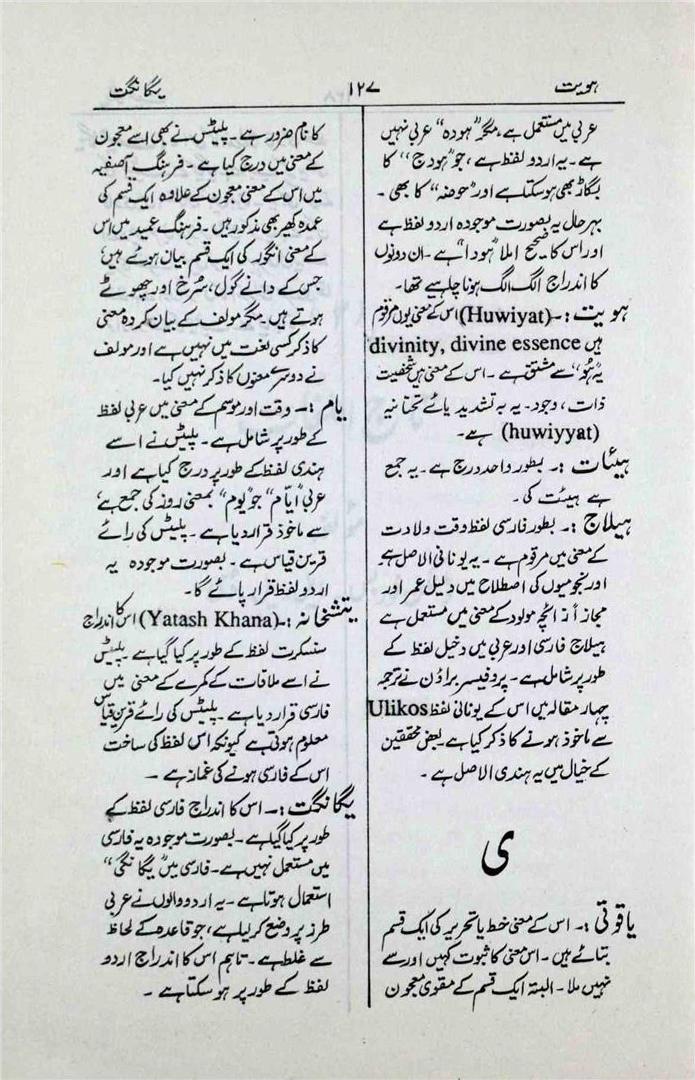 ہویت
۱۲۷
یگانگت
عربی میں مستعمل ہے، مگر "ہودہ" عربی نہیں
ہے۔ یہ اردو لفظ ہے، جو "ہودج" کا
بگاڑ بھی ہو سکتا ہے اور "حوضہ" کا بھی۔
بہرحال یہ بصورت موجودہ اردو لفظ ہے
اور اس کا صحیح املا "ہودا" ہے۔ ان دونوں
کا اندراج الگ الگ ہونا چاہیے تھا۔
ہویت:۔ (Huwiyat) اس کے معنی یوں مرقوم
ہیں divinity, divine essence
یہ "ہو" سے مشتق ہے۔ اس کے معنی ہیں شخصیت
ذات، وجود۔ یہ بہ تشدید یائے تحتانیہ
(huwiyyat) ہے۔
ہیئات:۔ بطور واحد درج ہے۔ یہ جمع
ہے ہیئت کی۔
ہیلاج:۔ بطور فارسی لفظ وقت ولادت
کے معنی میں مرقوم ہے۔ یہ یونانی الاصل ہے
اور نجومیوں کی اصطلاح میں دلیل عمر اور
مجازاً زائچہ مولود کے معنی میں مستعمل ہے
ہیلاج فارسی اور عربی میں دخیل لفظ کے
طور پر شامل ہے۔ پروفیسر براؤن نے ترجمہ
چہار مقالہ میں اس کے یونانی لفظ Ulikos
سے ماخوذ ہونے کا ذکر کیا ہے۔ بعض محققین
کے خیال میں یہ ہندی الاصل ہے۔
ی
یاقوتی:۔ اس کے معنی خط یا تحریر کی ایک قسم
بتائے ہیں۔ اس معنی کا ثبوت کہیں اور سے
نہیں ملا۔ البتہ ایک قسم کے مقوی معجون
کا نام ضرور ہے۔ پلیٹس نے بھی اسے معجون
کے معنی میں درج کیا ہے۔ فرہنگ آصفیہ
میں اس کے معنی معجون کے علاوہ ایک قسم کی
عمدہ کھیر بھی مذکور ہیں۔ فرہنگ عمید میں اس
کے معنی انگور کی ایک قسم بیان ہوئے ہیں،
جس کے دانے گول، سرخ اور چھوٹے
ہوتے ہیں۔ مگر مولف کے بیان کردہ معنی
کا ذکر کسی لغت میں نہیں ہے اور مولف
نے دوسرے معنوں کا ذکر نہیں کیا۔
یام:۔ وقت اور موسم کے معنی میں عربی لفظ
کے طور پر شامل ہے۔ پلیٹس نے اسے
ہندی لفظ کے طور پر درج کیا ہے اور
عربی "ایّام" جو "یوم" بمعنی روز کی جمع ہے،
سے ماخوذ قرار دیا ہے۔ پلیٹس کی رائے
قرین قیاس ہے۔ بصورت موجودہ یہ
اردو لفظ قرار پائے گا۔
یتشخانہ:۔ (Yatash Khana) اس کا اندراج
سنسکرت لفظ کے طور پر کیا گیا ہے۔ پلیٹس
نے اسے ملاقات کے کمرے کے معنی میں
فارسی قرار دیا ہے۔ پلیٹس کی رائے قرین قیاس
معلوم ہوتی ہے کیونکہ اس لفظ کی ساخت
اس کے فارسی ہونے کی غماز ہے۔
یگانگت:۔ اس کا اندراج فارسی لفظ کے
طور پر کیا گیا ہے۔ بصورت موجودہ یہ فارسی
میں مستعمل نہیں ہے۔ فارسی میں "یگانگی"
استعمال ہوتا ہے۔ یہ اردو والوں نے عربی
طرز پر وضع کر لیا ہے، جو قاعدہ کے لحاظ
سے غلط ہے۔ تاہم اس کا اندراج اردو
لفظ کے طور پر ہو سکتا ہے۔